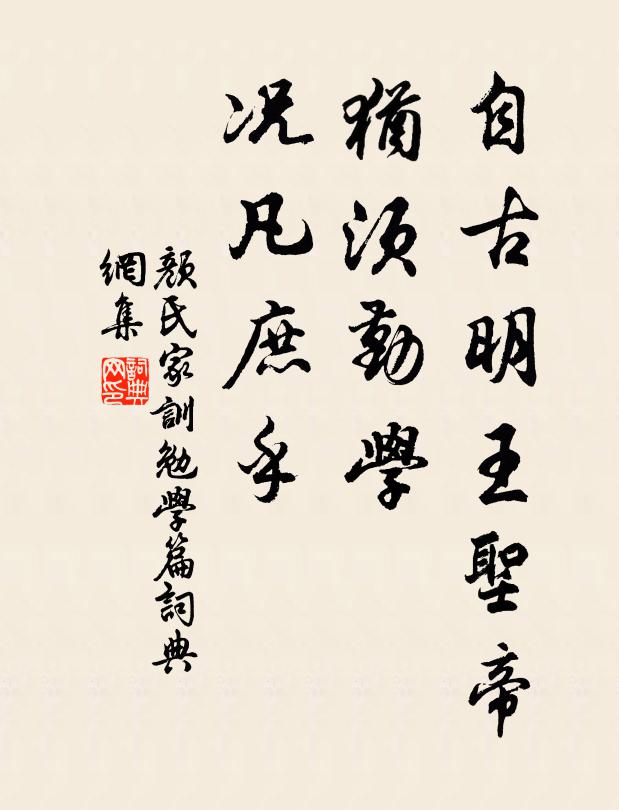 自古明王聖帝
猶須勤學
况凡庶乎
顏氏家訓勉學篇詞典
網集
詞典
网印